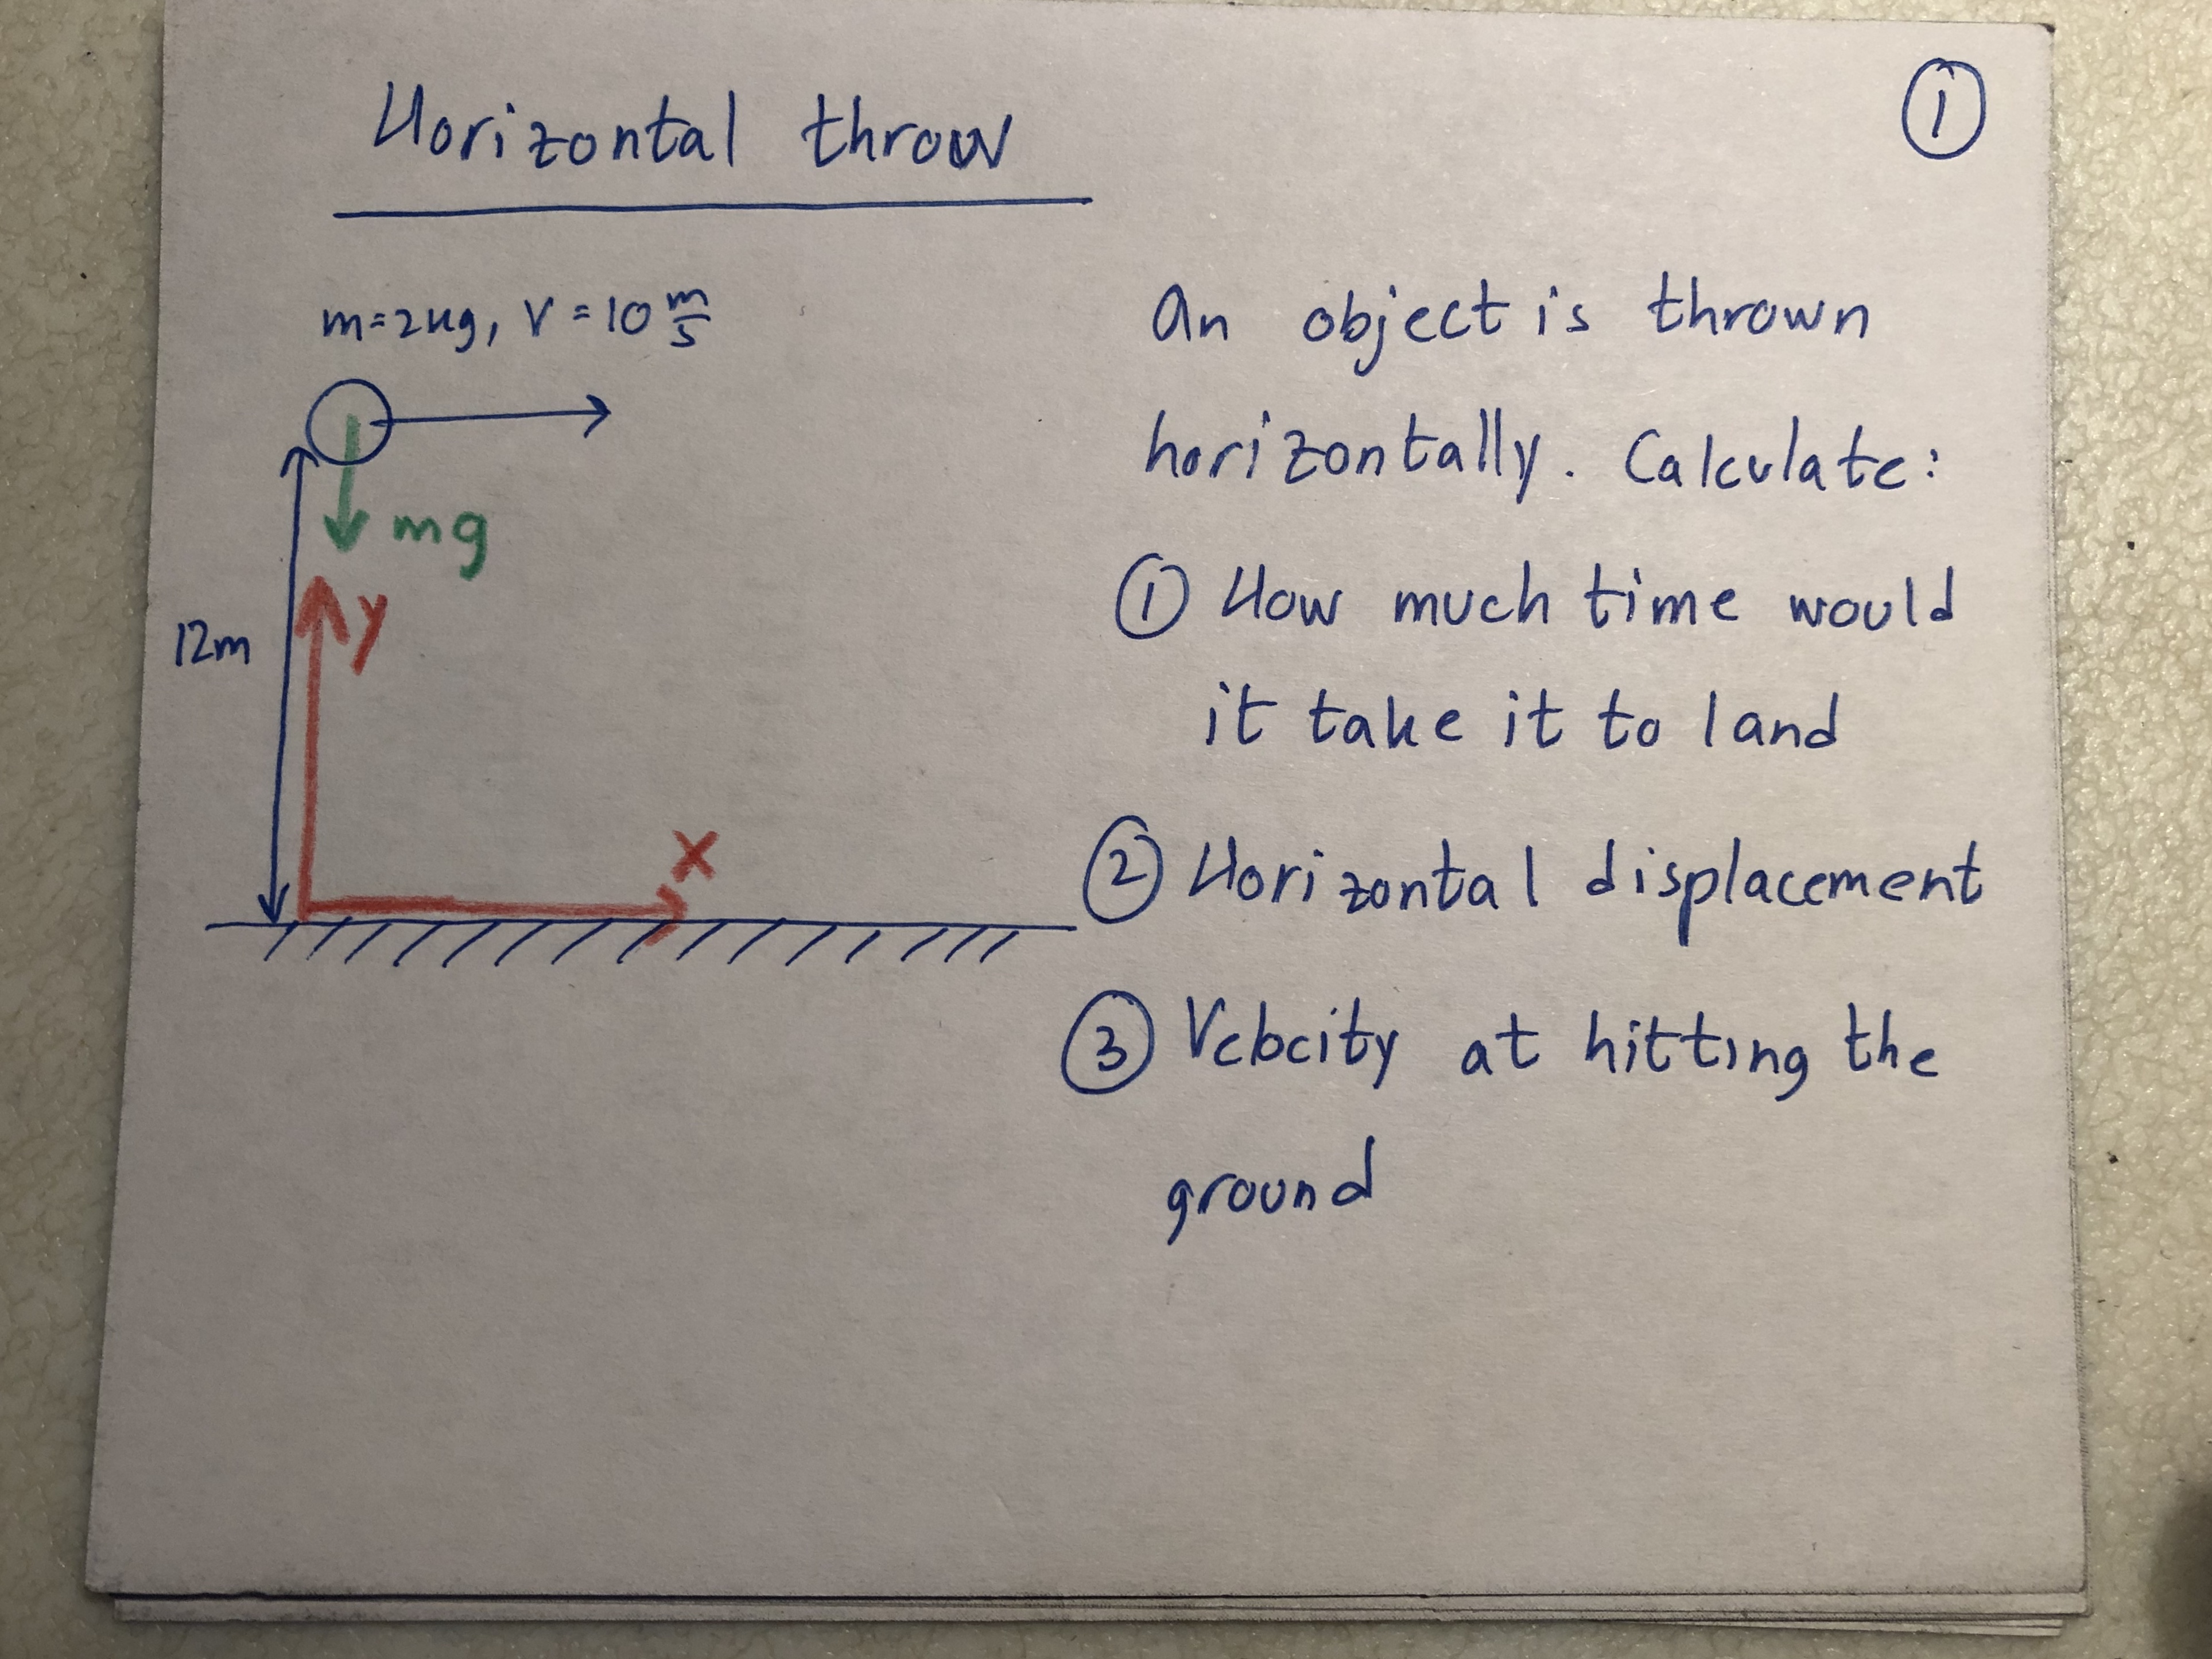 Horizontal throw
①
m=2kg, V=10 m/s
mg
y
12m
x
An object is thrown
horizontally. Calculate:
① How much time would
it take it to land
② Horizontal displacement
③ Velocity at hitting the
ground